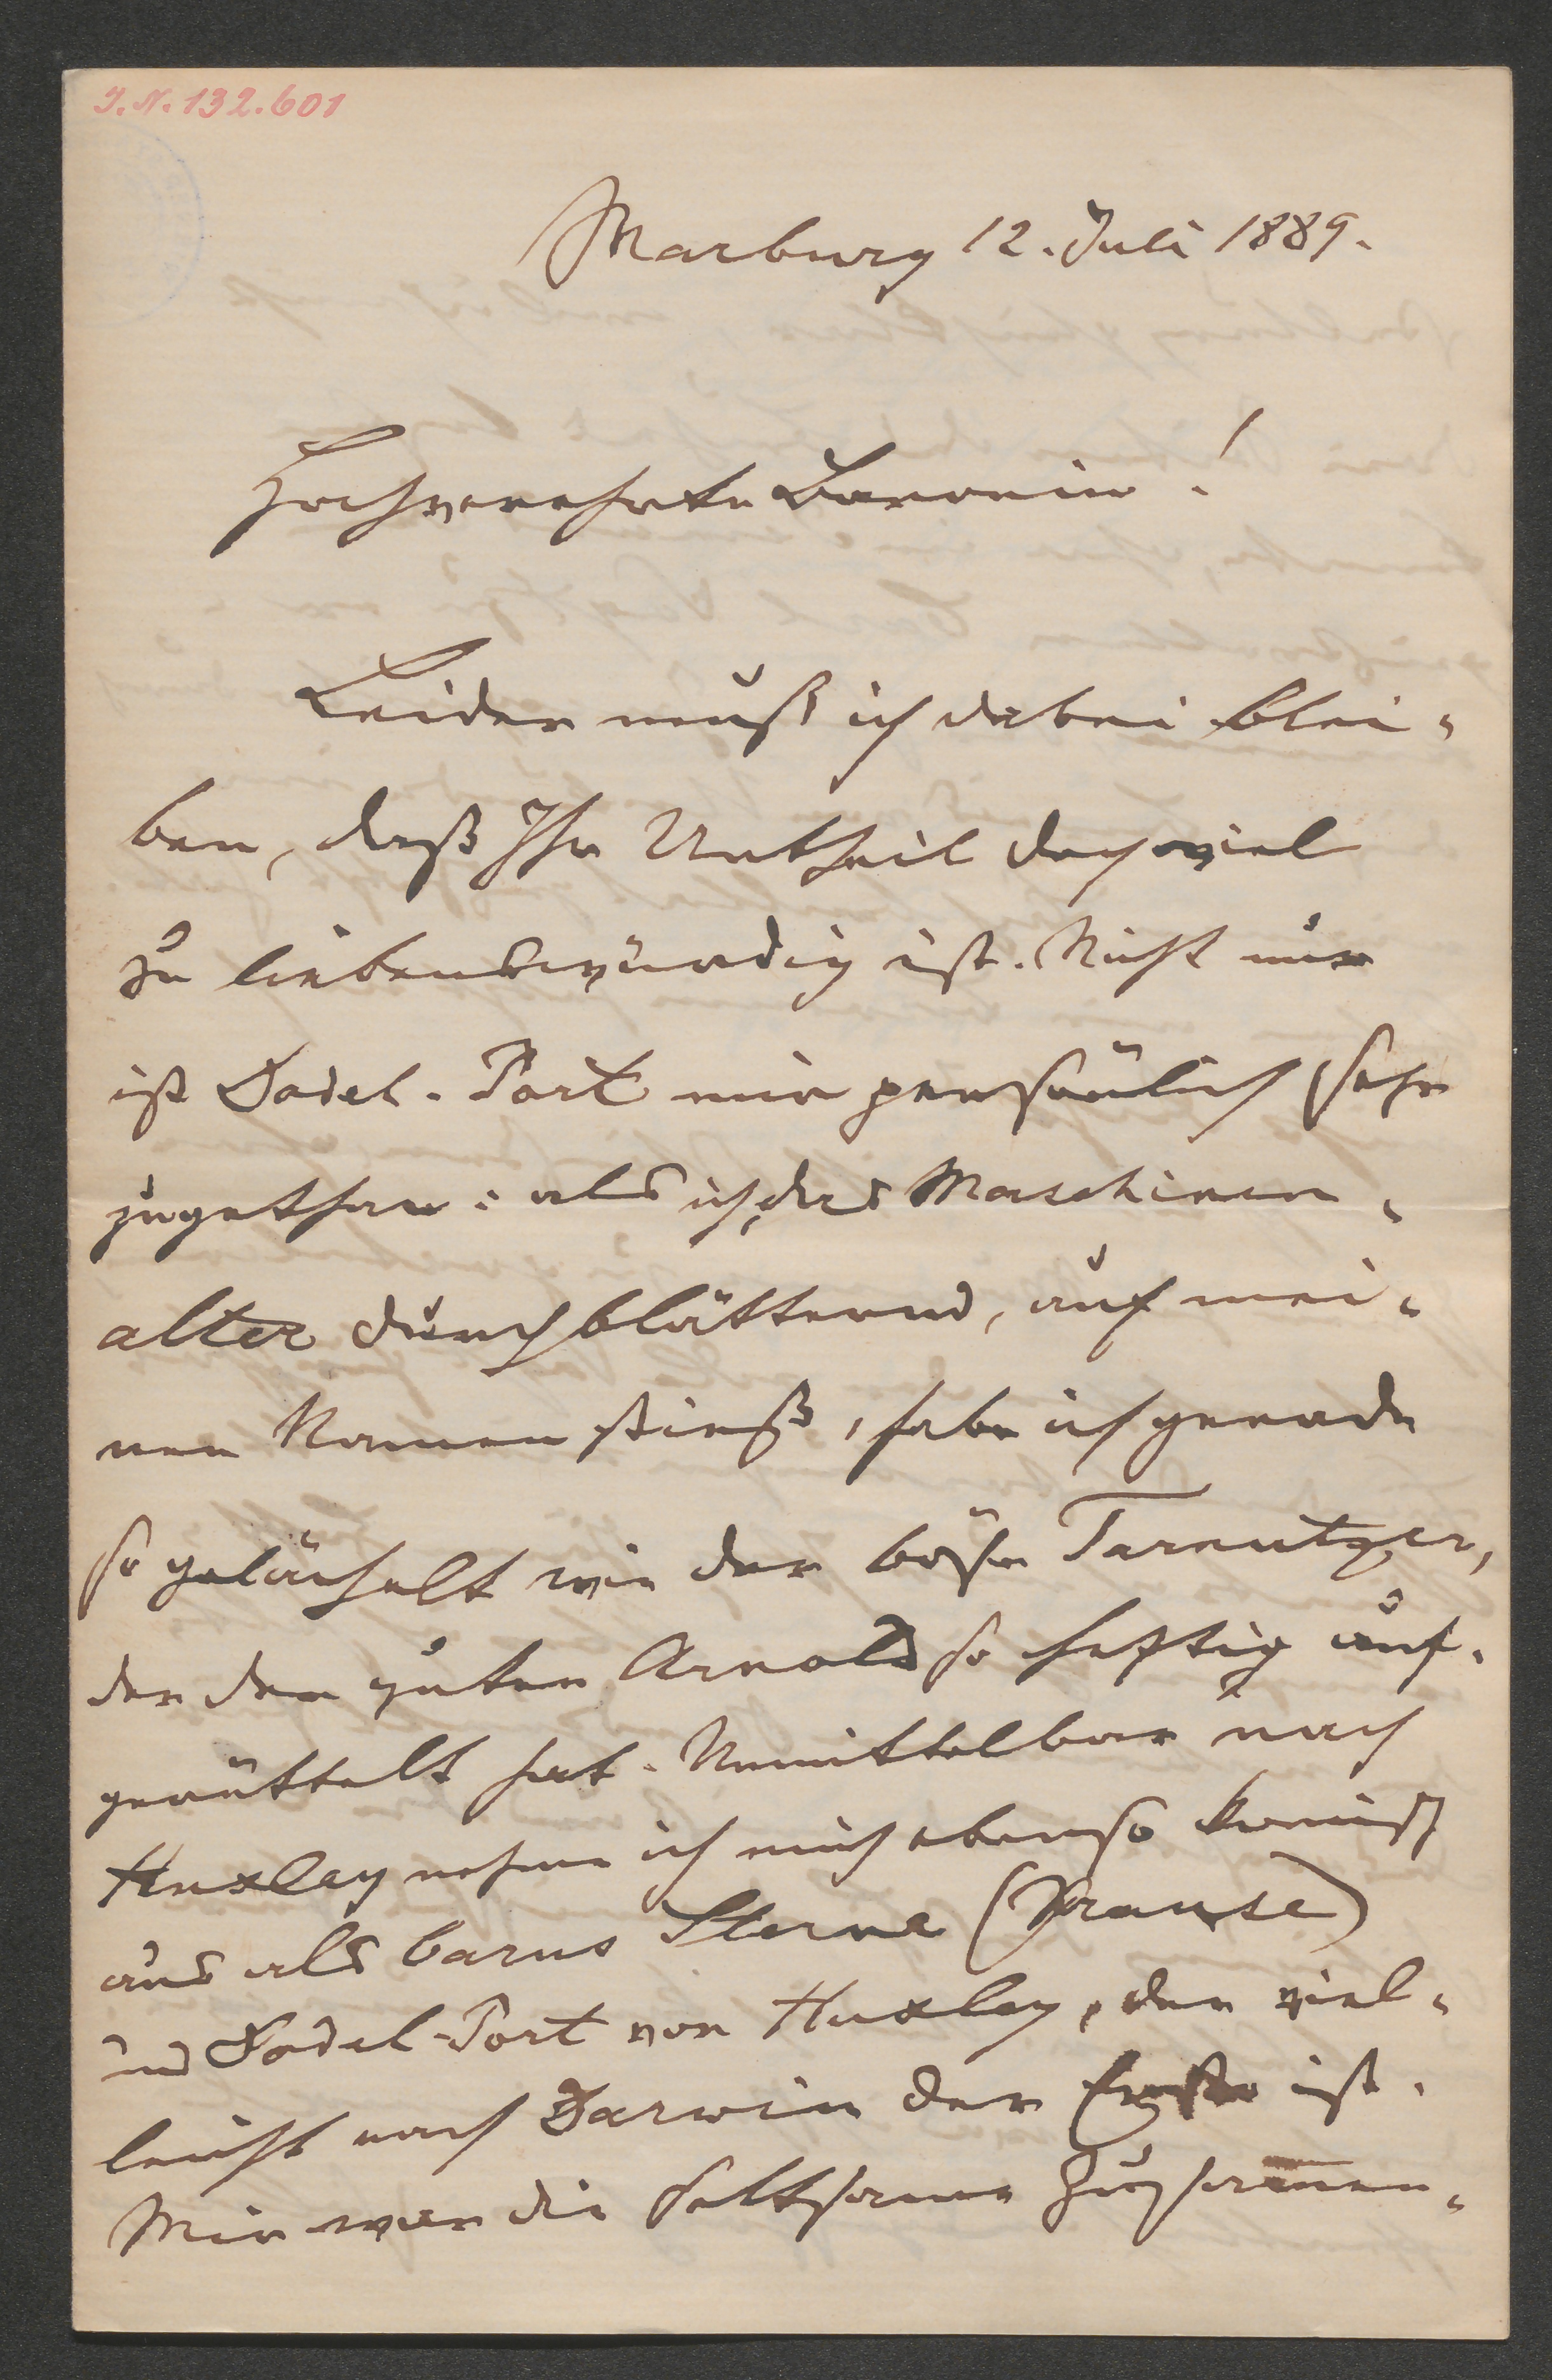 I. N. 132.601
Marburg 12. Juli 1889.
Hochverehrte Baronin!
Leider muß ich dabei blei-
ben, daß Ihr Urtheil doch viel
zu liebenswürdig ist. Nicht nur
ist Dodel-Port mir persönlich sehr
zugethan: als ich, das Maschinen-
alter durchblätternd, auf mei-
nen Namen stieß, habe ich gerade
so gelächelt wie der böse Tarnutzer,
der den guten Arnold so heftig auf-
gerüttelt hat. Unmittelbar nach
Huxley nehme ich mich ebenso komisch
aus als Carus Sterne (Krause)
und Dodel-Port vor Huxley, der viel-
leicht nach Darwin der Erste ist.
Mir war die seltsame Zusammen-